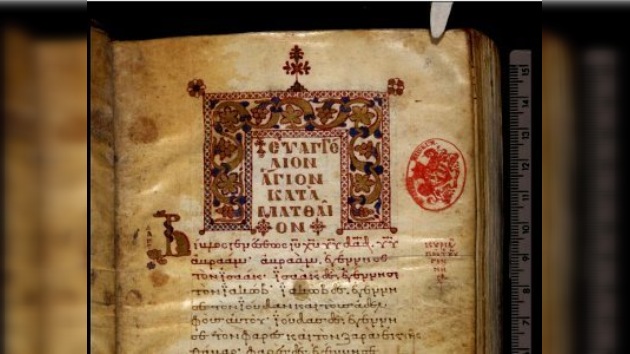 ΕΥΑΓΓΕ
ΛΙΟΝ
ἍΓΙΟΝ
ΚΑΤΑ
ΜΑΤΘΑΙ
ΟΝ
Βίβλος γενέσεως ιυ χυ υυ δαδ υυ
ἀβραάμ· ἀβραὰμ ἐγέννησε
τὸν ἰσαάκ· ἰσαὰκ δὲ ἐγέννησε
τὸν ἰακώβ· ἰακὼβ δὲ ἐγέννη
σε τὸν ἰούδαν καὶ τοὺς ἀδελ
φοὺς αὐτοῦ· ἰούδας δὲ ἐγέννη
σε τὸν φαρὲς καὶ τὸν ζαρὰ ἐκ τῆς
θάμαρ· φαρὲς δὲ ἐγέννησε
15
14
12
11
10
9
8
7